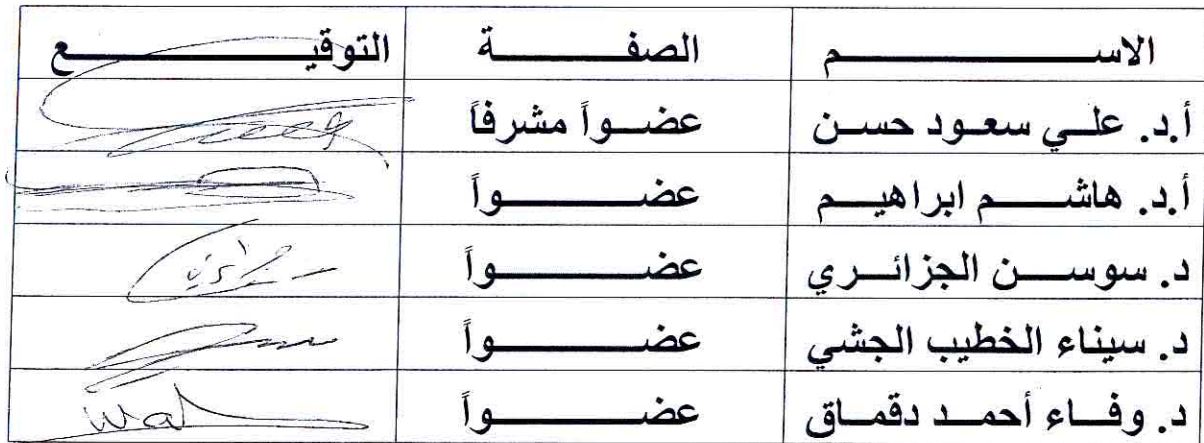 الاسم الصفة التوقيع
أ.د. علي سعود حسن عضواً مشرفاً
أ.د. هاشم ابراهيم عضواً
د. سوسن الجزائري عضواً
د. سيناء الخطيب الجشي عضواً
د. وفاء أحمد دقماق عضواً